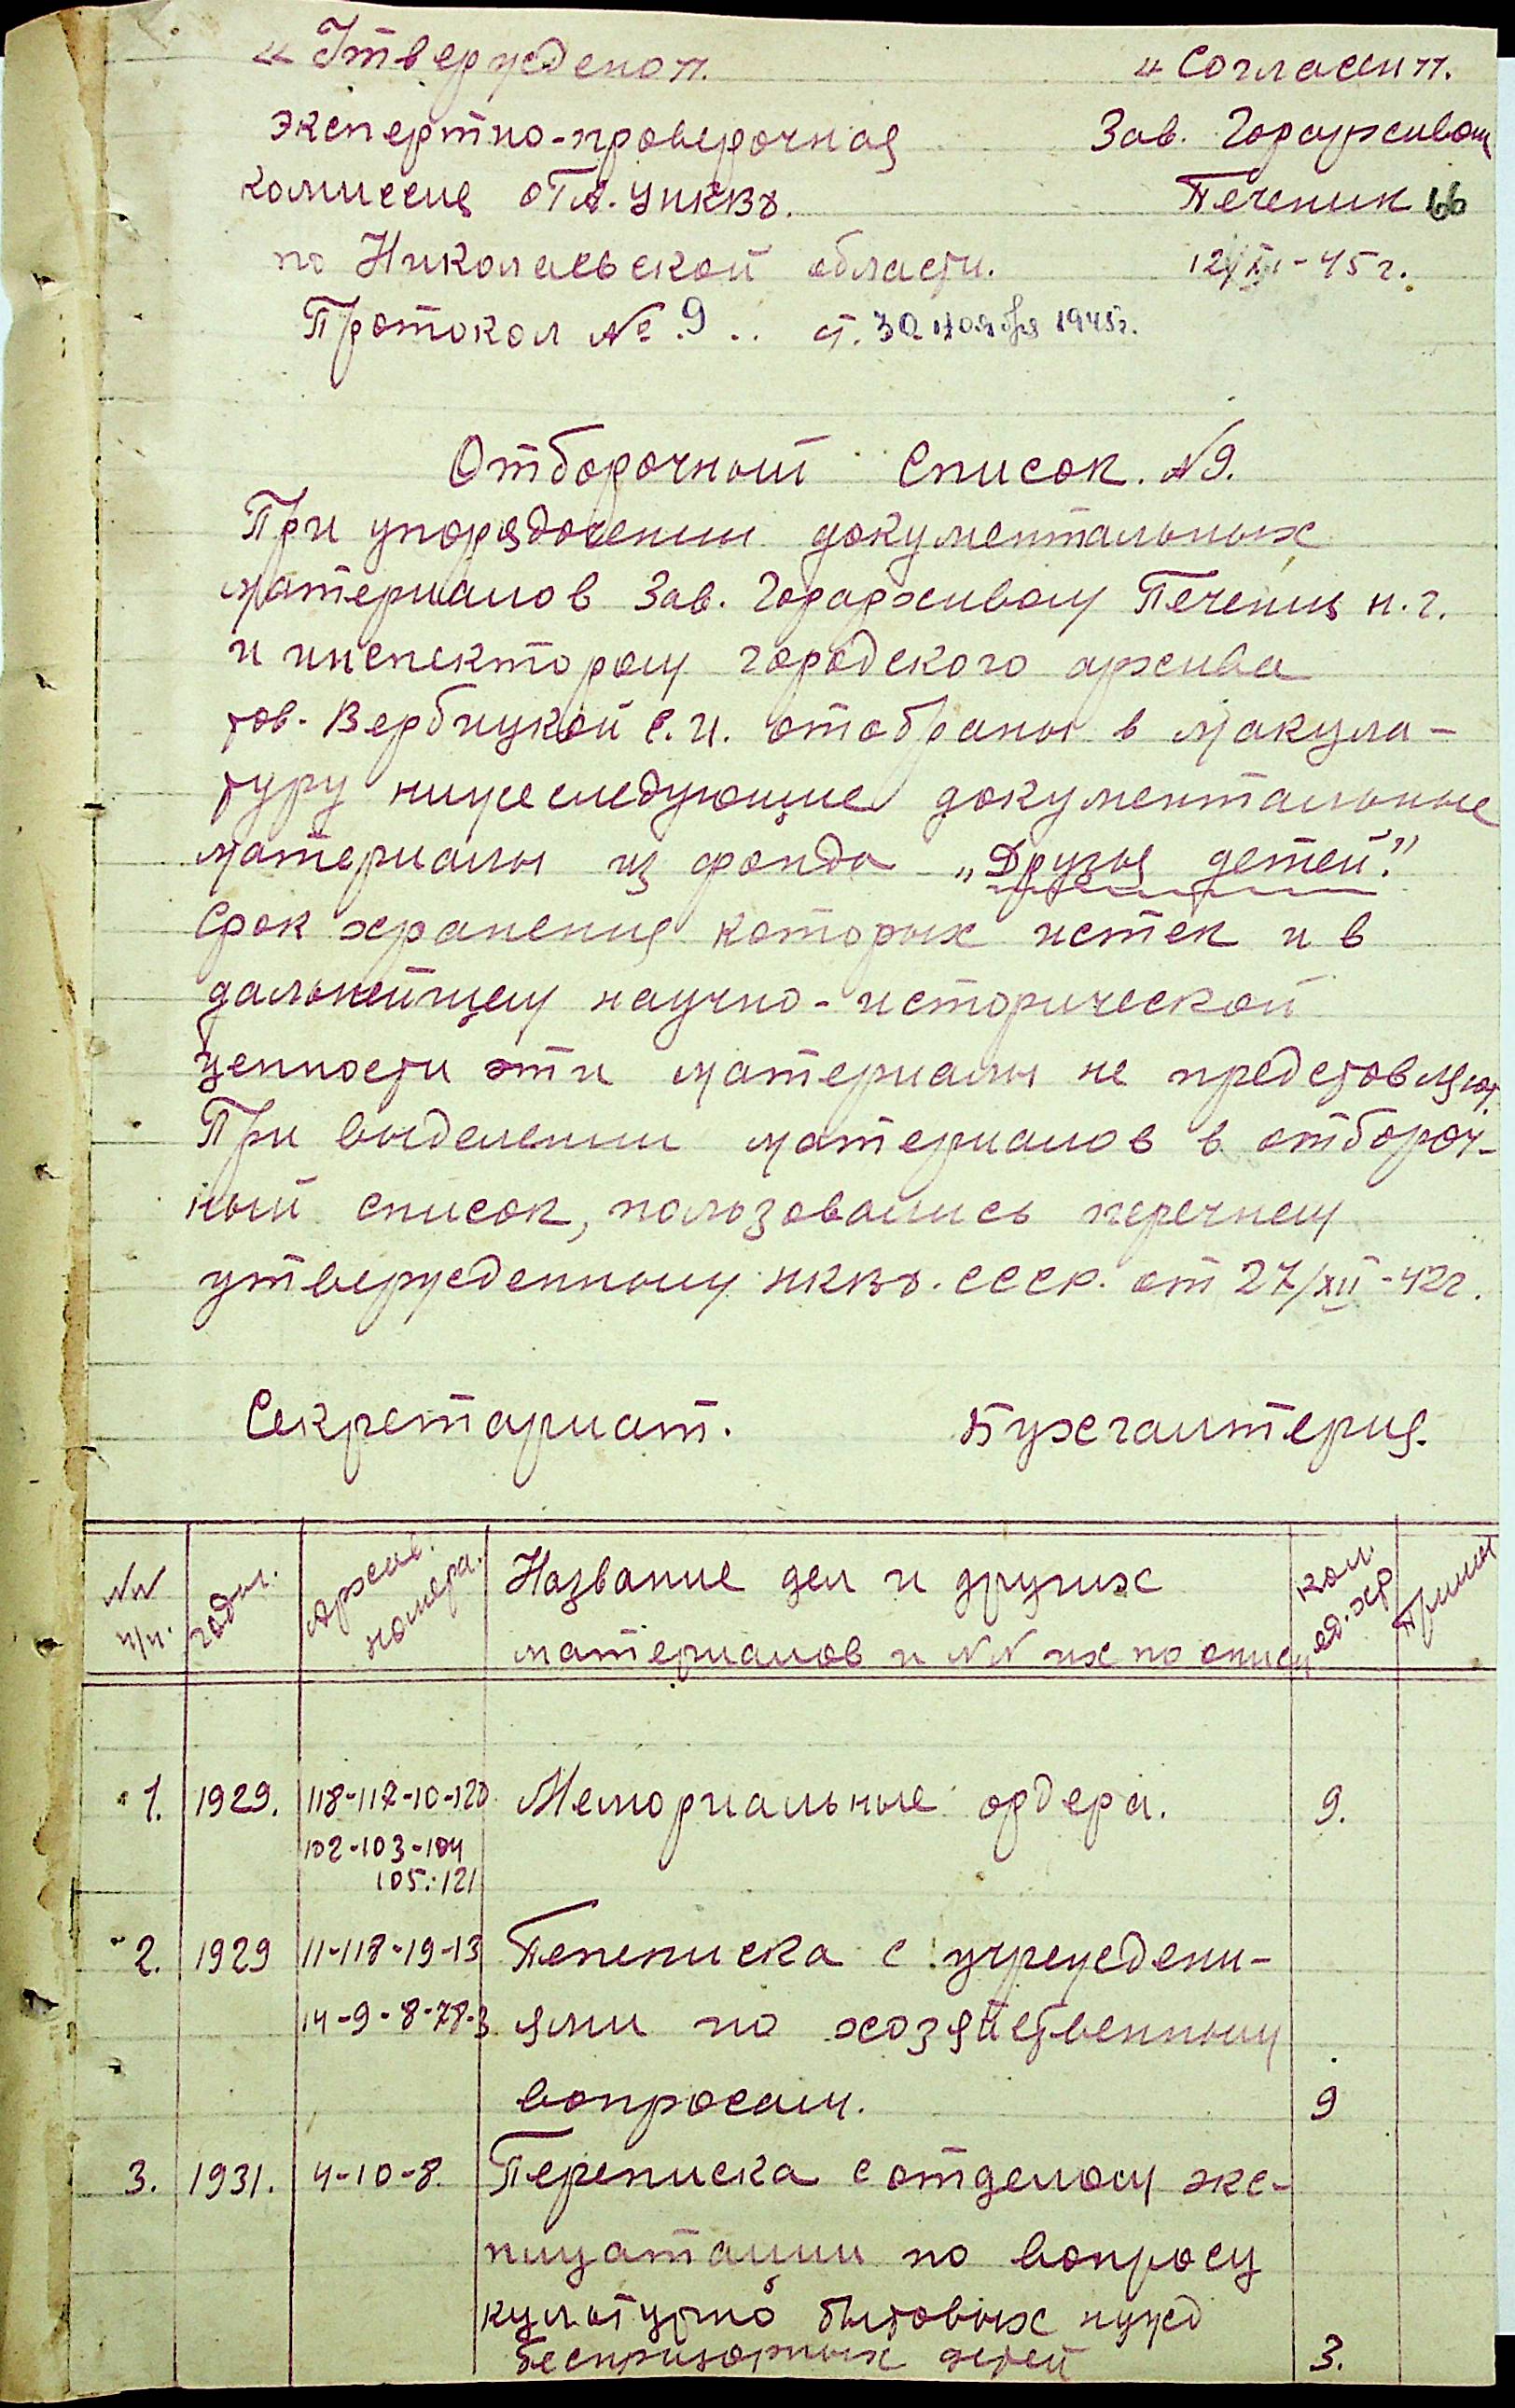 „Утверждено".
экспертно-проверочная
комиссия ОГА. УНКВД.
по Николаевской области.
Протокол № 9 .. от. 30 ноября 1945г.
„Согласен".
Зав. Горархивом
Печеник
12/XI-45г.
Отборочный Список. №9.
При упорядочении документальных
материалов Зав. Горархивом Печеник н.г.
и инспектором городского архива
тов. Вербицкой С.И. отобраны в макула-
туру нижеследующие документальные
материалы из фонда „Друзья детей".
Срок хранения которых истек и в
дальнейшем научно-исторической
ценности эти материалы не представляют.
При выделении материалов в отбороч-
ный список, пользовались перечнем
утвержденному НКВД. СССР. от 27/XII-42г.
Секретариат. Бухгалтерия.
NN п/п. годы. Архив. номера. Название дел и других материалов и NN их по описи кол. ед. хр Примеч
1. 1929. 118-112-10-120 Мемориальные ордера. 9.
102-103-104
105.:121
2. 1929 11-118-19-13 Пепеписка с учреждени-
14-9-8-78-3. ями по хозяйственным
вопросам. 9
3. 1931. 4-10-8. Переписка с отделом экс-
плуатации по вопросу
культурно бытовых нужд
беспризорных детей 3.